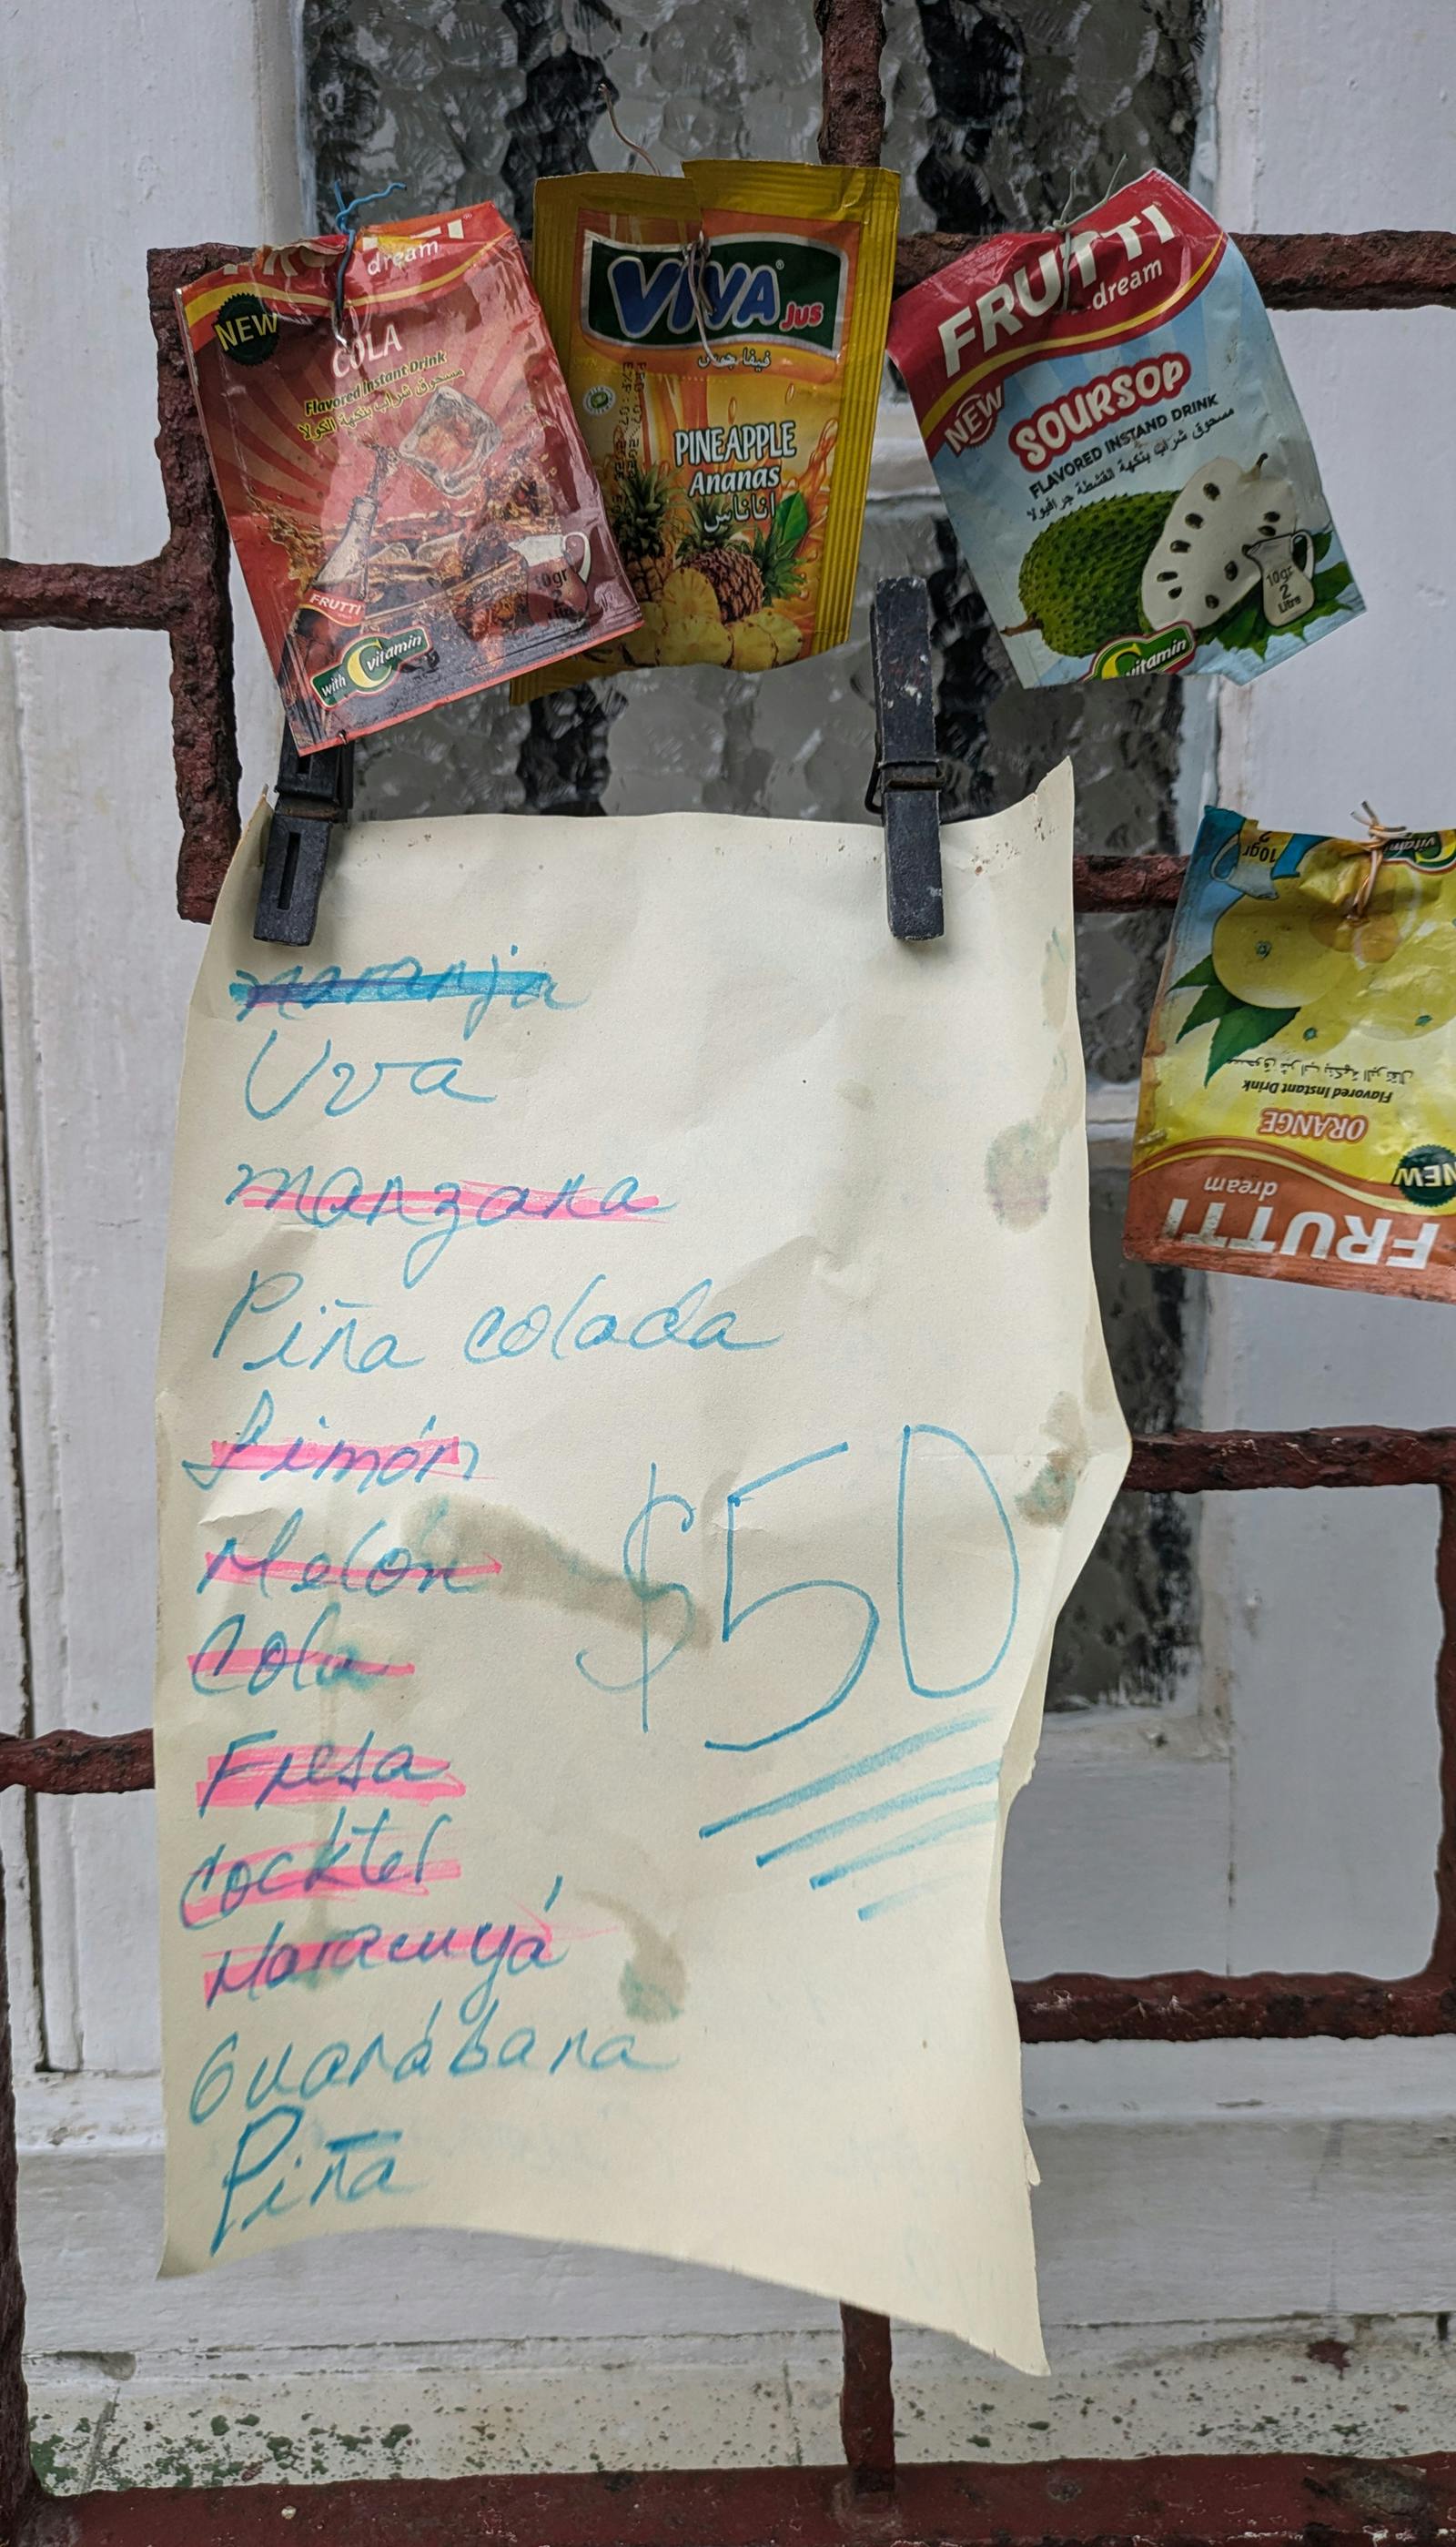 FRUTTI
dream
NEW
COLA
Flavored Instant Drink
مسحوق شراب بنكهة الكولا
10gr
FRUTTI
with C vitamin
VIVA Jus
فيفا جوس
PINEAPPLE
Ananas
اناناس
FRUTTI
dream
NEW
SOURSOP
FLAVORED INSTAND DRINK
مسحوق شراب بنكهة القشطة جرافيولا
10gr
2
Litre
C vitamin
FRUTTI
dream
NEW
ORANGE
Flavored Instant Drink
مسحوق شراب بنكهة البرتقال
10gr
2
C vitamin
naranja
Uva
manzana
Piña colada
Limón
Melón
$50
Cola
Fresa
Cocktel
Maracuyá
Guanábana
Piña